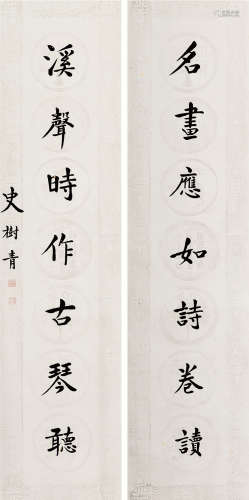 名畫應如詩卷讀
溪聲時作古琴聽
史樹青